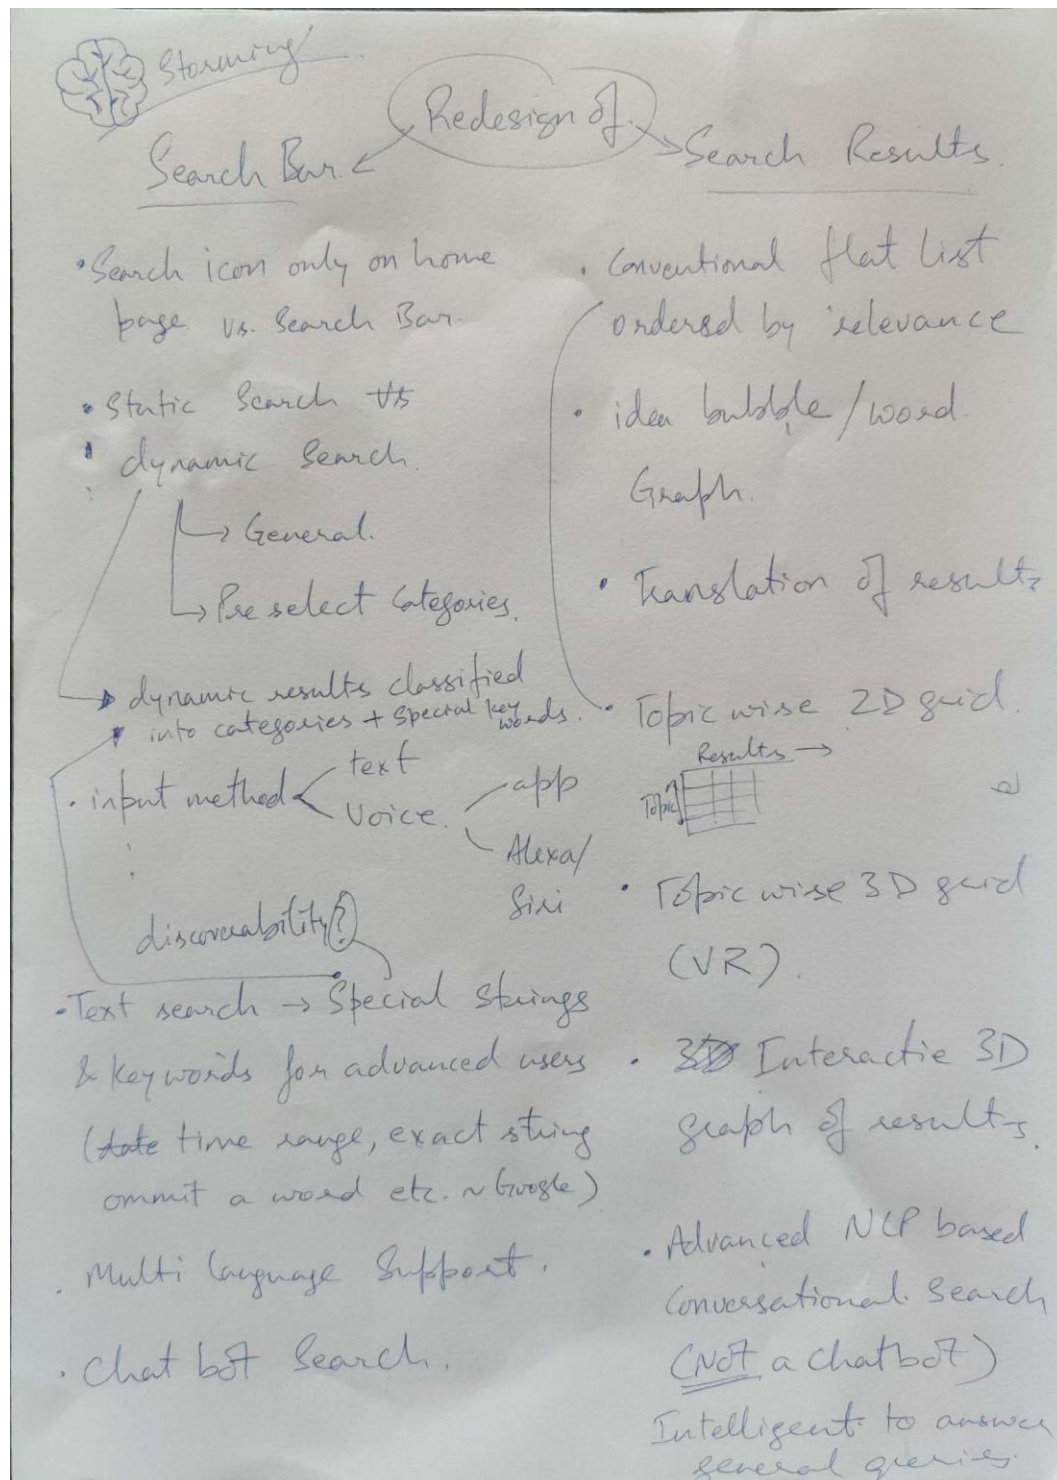 Storming
Redesign of
Search Bar
Search icon only on home
page vs. Search Bar.
Static Search vs
dynamic Search.
General.
Pre select Categories.
dynamic results classified
into categories + Special key words.
input method
text
Voice.
app
Alexa/
Siri
discoverability?
Text search → Special Strings
& Keywords for advanced users
(date time range, exact string
ommit a word etc. ~ Google)
Multi language Support.
Chat bot Search.
Search Results.
Conventional flat List
ordered by relevance
idea bubble/word
Graph.
Translation of results
Topic wise 2D grid.
Results →
Topic
Topic wise 3D grid
(VR).
3D Interactie 3D
graph of results.
Advanced NLP based
Conversational Search
(Not a chatbot)
Intelligent to answer
general queries.